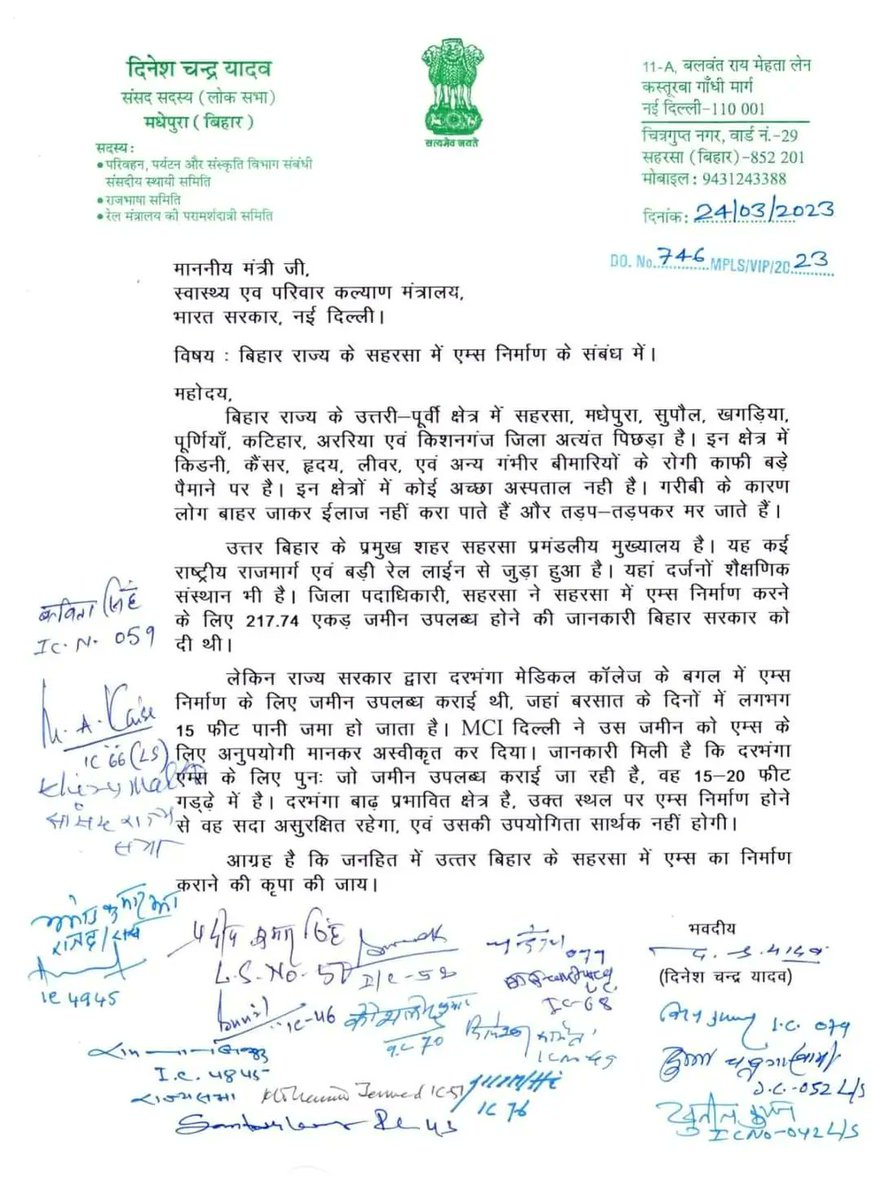 दिनेश चन्द्र यादव
संसद सदस्य (लोक सभा)
मधेपुरा (बिहार)
सदस्य:
• परिवहन, पर्यटन और संस्कृति विभाग संबंधी
संसदीय स्थायी समिति
• राजभाषा समिति
• रेल मंत्रालय की परामर्शदात्री समिति
सत्यमेव जयते
11-A, बलवंत राय मेहता लेन
कस्तूरबा गाँधी मार्ग
नई दिल्ली-110 001
चित्रगुप्त नगर, वार्ड नं.-29
सहरसा (बिहार)-852 201
मोबाइल: 9431243388
दिनांक: 24/03/2023
DO. No. 746 MPLS/VIP/20 23
माननीय मंत्री जी,
स्वास्थ्य एव परिवार कल्याण मंत्रालय,
भारत सरकार, नई दिल्ली।
विषय : बिहार राज्य के सहरसा में एम्स निर्माण के संबंध में।
महोदय,
बिहार राज्य के उत्तरी–पूर्वी क्षेत्र में सहरसा, मधेपुरा, सुपौल, खगड़िया,
पूर्णियाँ, कटिहार, अररिया एवं किशनगंज जिला अत्यंत पिछड़ा है। इन क्षेत्र में
किडनी, कैंसर, हृदय, लीवर, एवं अन्य गंभीर बीमारियों के रोगी काफी बड़े
पैमाने पर है। इन क्षेत्रों में कोई अच्छा अस्पताल नही है। गरीबी के कारण
लोग बाहर जाकर ईलाज नहीं करा पाते हैं और तड़प–तड़पकर मर जाते हैं।
उत्तर बिहार के प्रमुख शहर सहरसा प्रमंडलीय मुख्यालय है। यह कई
राष्ट्रीय राजमार्ग एवं बड़ी रेल लाईन से जुड़ा हुआ है। यहां दर्जनों शैक्षणिक
संस्थान भी है। जिला पदाधिकारी, सहरसा ने सहरसा में एम्स निर्माण करने
के लिए 217.74 एकड़ जमीन उपलब्ध होने की जानकारी बिहार सरकार को
दी थी।
कविता सिंह
IC. N. 059
लेकिन राज्य सरकार द्वारा दरभंगा मेडिकल कॉलेज के बगल में एम्स
निर्माण के लिए जमीन उपलब्ध कराई थी, जहां बरसात के दिनों में लगभग
15 फीट पानी जमा हो जाता है। MCI दिल्ली ने उस जमीन को एम्स के
लिए अनुपयोगी मानकर अस्वीकृत कर दिया। जानकारी मिली है कि दरभंगा
एम्स के लिए पुनः जो जमीन उपलब्ध कराई जा रही है, वह 15–20 फीट
गड्ढ़े में है। दरभंगा बाढ़ प्रभावित क्षेत्र है, उक्त स्थल पर एम्स निर्माण होने
से वह सदा असुरक्षित रहेगा, एवं उसकी उपयोगिता सार्थक नहीं होगी।
IC 66 (LS)
सांसद राज्य
सभा
आग्रह है कि जनहित में उत्तर बिहार के सहरसा में एम्स का निर्माण
कराने की कृपा की जाय।
भवदीय
(दिनेश चन्द्र यादव)
IC 4945
सिंह
L.S. No. 50
I/C-52
077
IC-68
I.C. 079
IC-46
I.C-70
I.C. 4845
राज्यसभा
IC 51
IC 76
I.C.-052 L/S
IC No-042 L/S